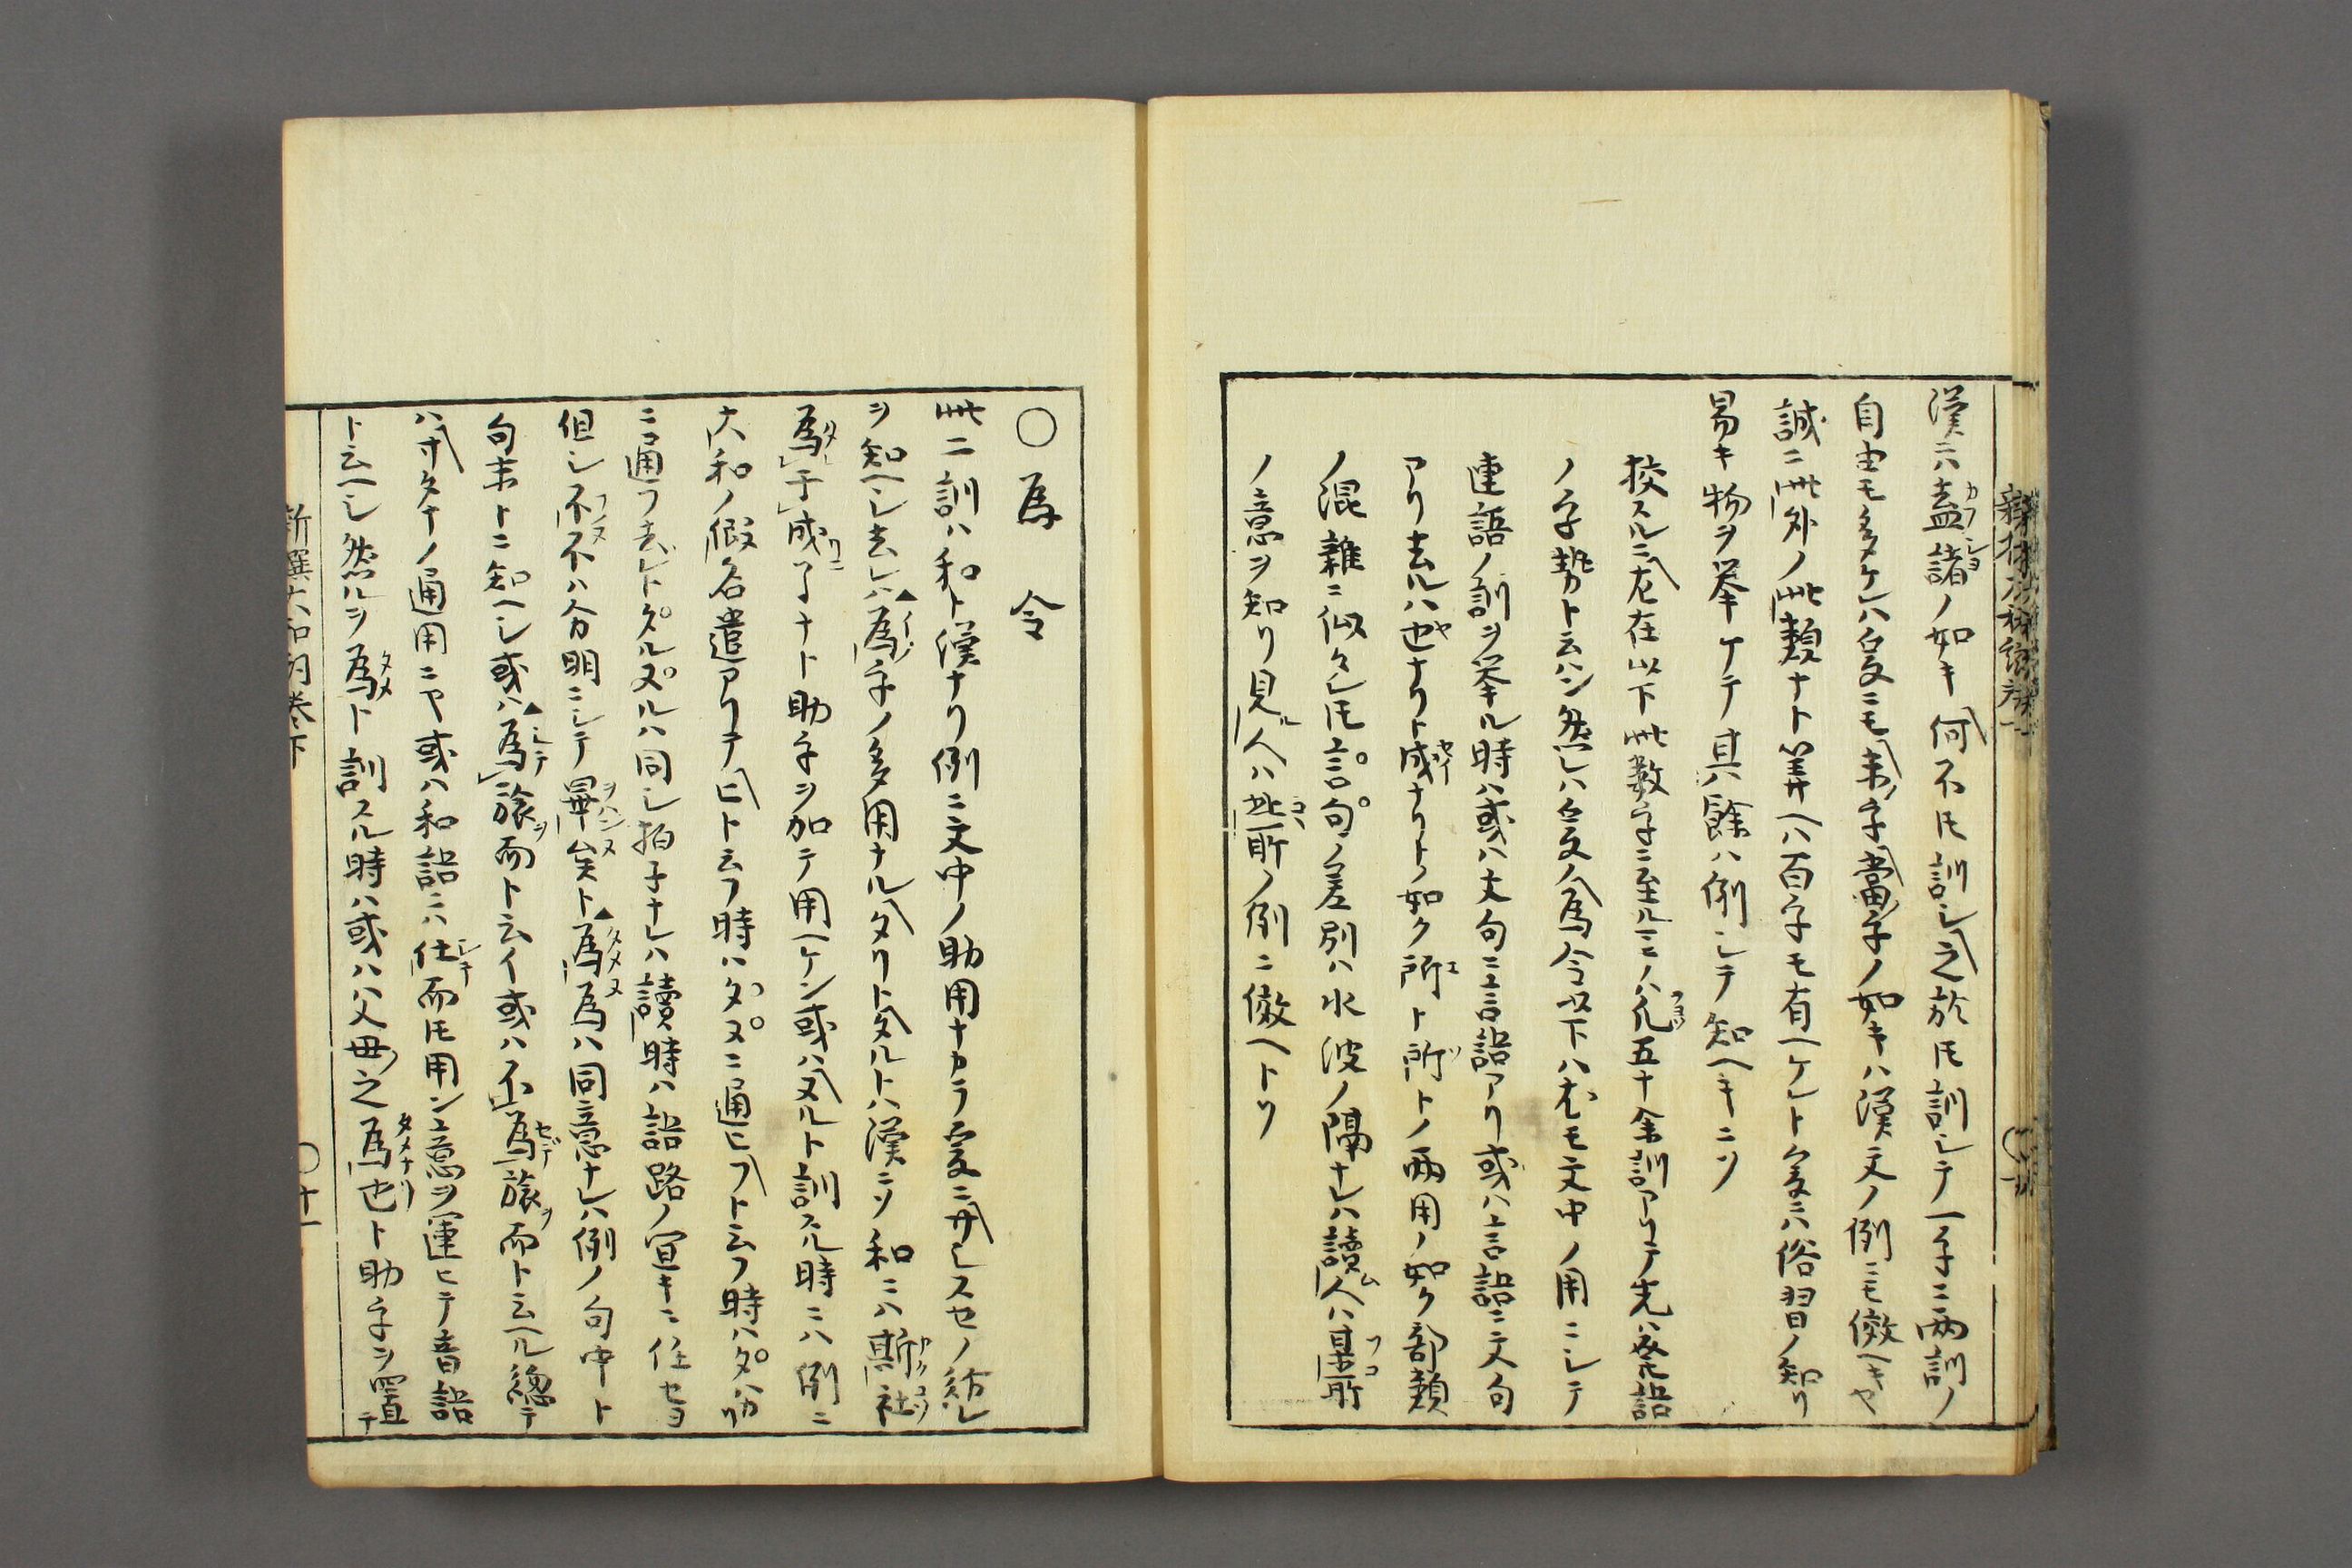 漢ニハ盍諸ノ如キ何不トモ訓シ之於トモ訓シテ一字ニ両訓ノ
自由モ多ケレハ爰ニモ未字當字ノ如キハ漢文ノ例ニモ倣ヘキヤ
誠ニ此外ノ此類ナト筭ヘハ百字モ有ヘケレト爰ニハ俗習ノ知リ
易キ物ヲ挙ケテ其餘ハ例シテ知ヘキニソ
按スルニ在以下此数字ニ至ルニハ凡五十余訓アリテ先ハ發語
ノ字勢ト云ハン然レハ爰ノ為令以下ハ尤モ文中ノ用ニシテ
連語ノ訓ヲ挙ル時ハ或ハ文句ニ言語アリ或ハ言語ニ文句
アリ去ルハ也ナリト成ナリトノ如ク所ト所トノ両用ノ如ク部類
ノ混雜ニ似タレトモ言句ノ差別ハ水波ノ隔ナレハ讀人ハ某所
ノ意ヲ知リ見人ハ此所ノ例ニ倣ヘトソ
○為 令
此二訓ハ和ト漢ナリ例ニ文中ノ助用ナカラ爰ニサレスセノ紛レ
ヲ知ヘシ去レハ為字ノ多用ナルタリトタルトハ漢ニソ和ニハ斯社
為于成了ナト助字ヲ加テ用ヘケン或ハヌルト訓スル時ニハ例ニ
大和ノ假名遣アリテヒト云フ時ハタヌニ通ヒフト云フ時ハタハ
ニ通フ去レトタルヌルハ同シ拍子ナレハ讀時ハ語路ノ宜キニ任セヨ
但シ不不ハ分明ニシテ畢矣ト為為ハ同意ナレハ例ノ句中ト
句末トニ知ヘシ或ハ為旅而ト云イ或ハ不為旅而ト云ヘル總テ
ハサタナノ通用ニヤ或ハ和語ニハ仕而トモ用ン意ヲ運ヒテ音語
ト云ヘシ然ルヲ為ト訓スル時ハ或ハ父母之為也ト助字ヲ置テ
新撰大和詞卷下
○十一